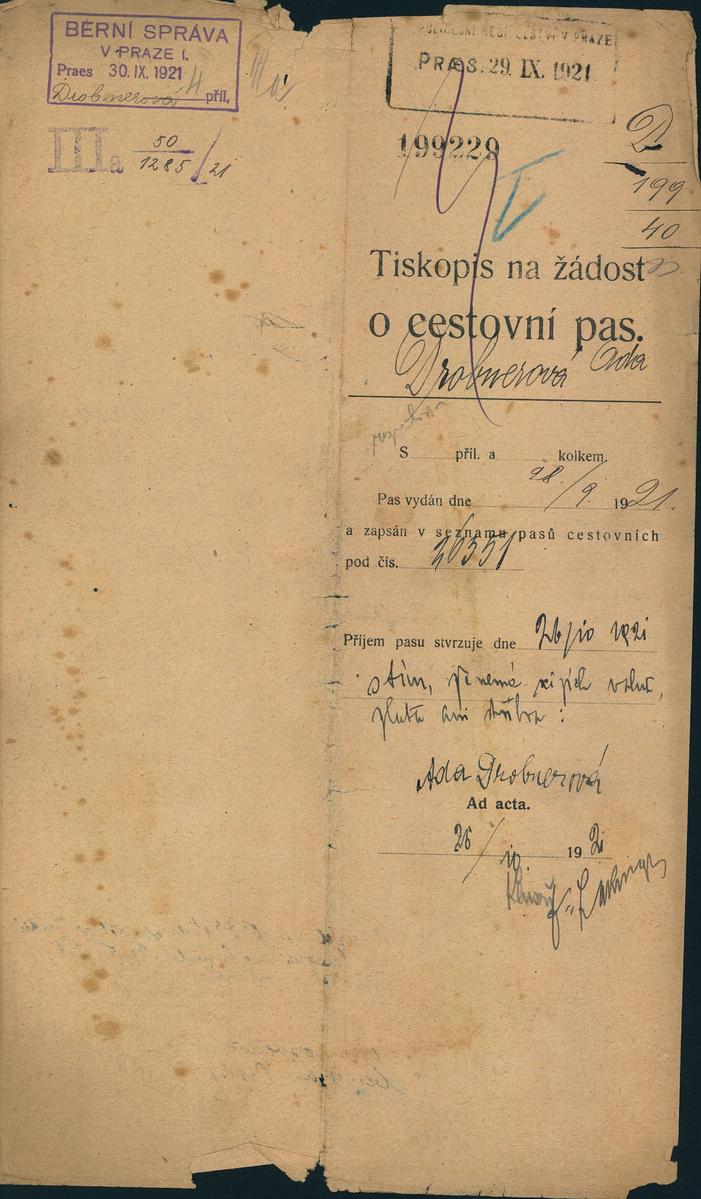 BERNÍ SPRÁVA
V PRAZE I.
Praes 30. IX. 1921
Drobnerová 4 příl.
IIIa 50
1285/21
POLICEJNÍ ŘEDITELSTVÍ V PRAZE
PRÆS. 29. IX. 1921
199229
D
199
40
Tiskopis na žádost
o cestovní pas.
Drobnerová Ada
S příl. a kolkem.
Pas vydán dne 28/9. 1921.
a zapsán v seznamu pasů cestovních
pod čís. 26551
Příjem pasu stvrzuje dne 26/10 1921
s tím, že nemá cizích valut,
zlata ani stříbra:
Ada Drobnerová
Ad acta.
26/10. 1921